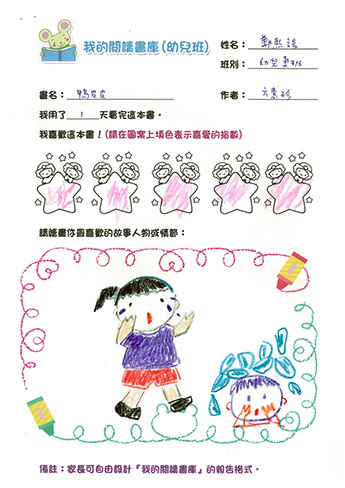 我的閱讀書庫(幼兒班)
姓名：鄭
班別：幼兒
書名：鴨皮皮
作者：方素珍
我用了 1 天看完這本書。
我喜歡這本書！(請在圖案上填色表示喜愛的指數)
請繪畫你最喜歡的故事人物或情節：
備註：家長可自由設計『我的閱讀書庫』的報告格式。